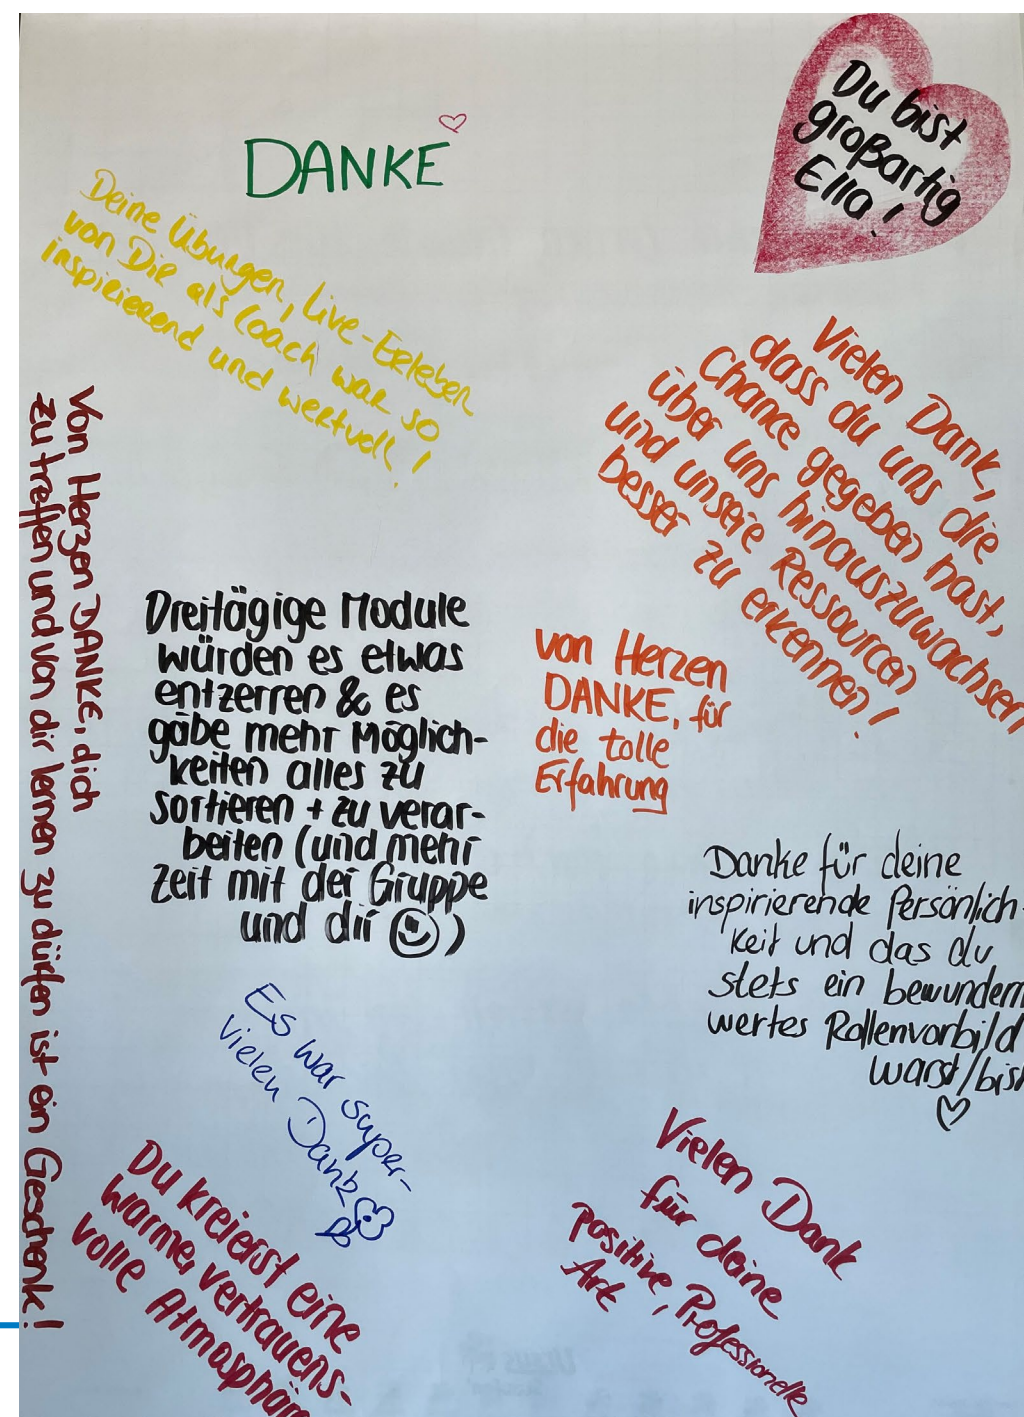 DANKE
Du bist
großartig
Ella!
Deine Übungen, Live-Erleben
von Dir als Coach war so
inspirierend und wertvoll!
Vielen Dank,
dass du uns die
Chance gegeben hast,
über uns hinauszuwachsen
und unsere Ressourcen
besser zu erkennen!
Von Herzen DANKE, dich
zu treffen und von dir lernen zu dürfen ist ein Geschenk!
Dreitägige Module
würden es etwas
entzerren & es
gäbe mehr Möglich-
keiten alles zu
sortieren + zu verar-
beiten (und mehr
Zeit mit der Gruppe
und dir ☺)
von Herzen
DANKE, für
die tolle
Erfahrung
Danke für deine
inspirierende Persönlich-
keit und das du
stets ein bewundern
wertes Rollenvorbild
warst/bist
Es war super-
vielen Dank
Du kreierst eine
warme, vertrauens-
volle Atmosphär
Vielen Dank
für deine
positive, Professionelle
Art